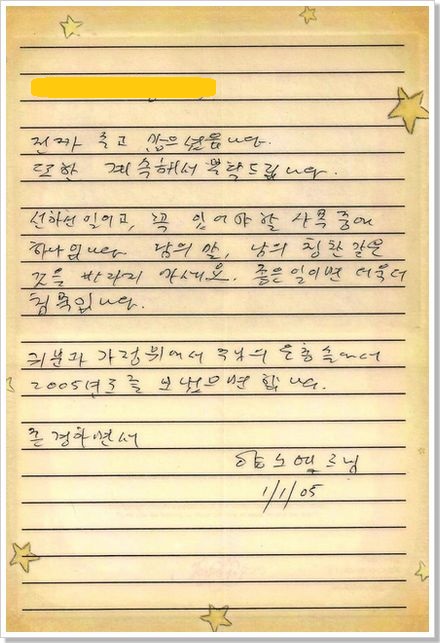 진짜 수고 많으셨읍니다.
또한 계속해서 부탁드립니다.
선하신 일이고, 꼭 있어야할 사목중에
하나입니다. 남의 말, 남의 칭찬 같은
것을 바라지 마세요. 좋은일이면 더욱더
침묵입니다.
귀분과 가정위에서 주님의 은총속에서
2005년도를 보냈으면 합니다.
존경하면서
1/1/05